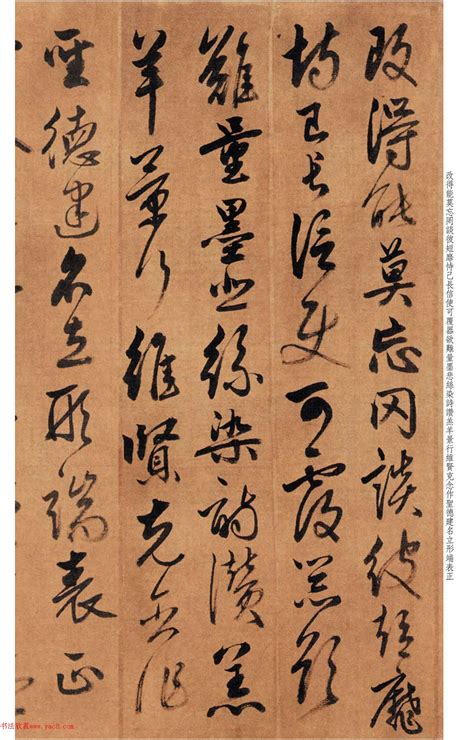 改得能莫忘罔談彼短靡
恃己長信使可覆器欲
難量墨悲絲染詩讚羔
羊景行維賢克念作
聖德建名立形端表正
改得能莫忘罔談彼短靡恃己長信使可覆器欲難量墨悲絲染詩讚羔羊景行維賢克念作聖德建名立形端表正
书法欣赏www.yac8.com